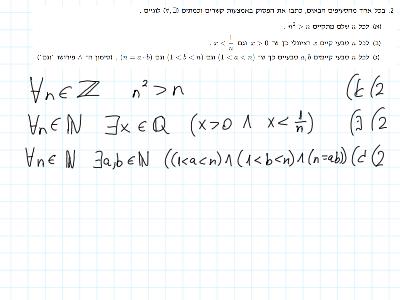 2. בכל אחד מהסעיפים הבאים, כתבו את הפסוק באמצעות קשרים וכמתים (∀,∃) לוגיים.
(א) לכל n שלם מתקיים n² > n.
(ב) לכל n טבעי קיים x רציונלי כך ש־ x > 0 וגם x < 1/n.
(ג) לכל n טבעי קיימים a,b טבעיים כך ש־ (1 < a < n) וגם (1 < b < n) וגם (n = a · b).
2) א) ∀n∈ℤ n²>n
2) ב) ∀n∈ℕ ∃x∈ℚ (x>0 ∧ x<1/n)
2) ג) ∀n∈ℕ ∃a,b∈ℕ ((1<a<n)∧(1<b<n)∧(n=ab))